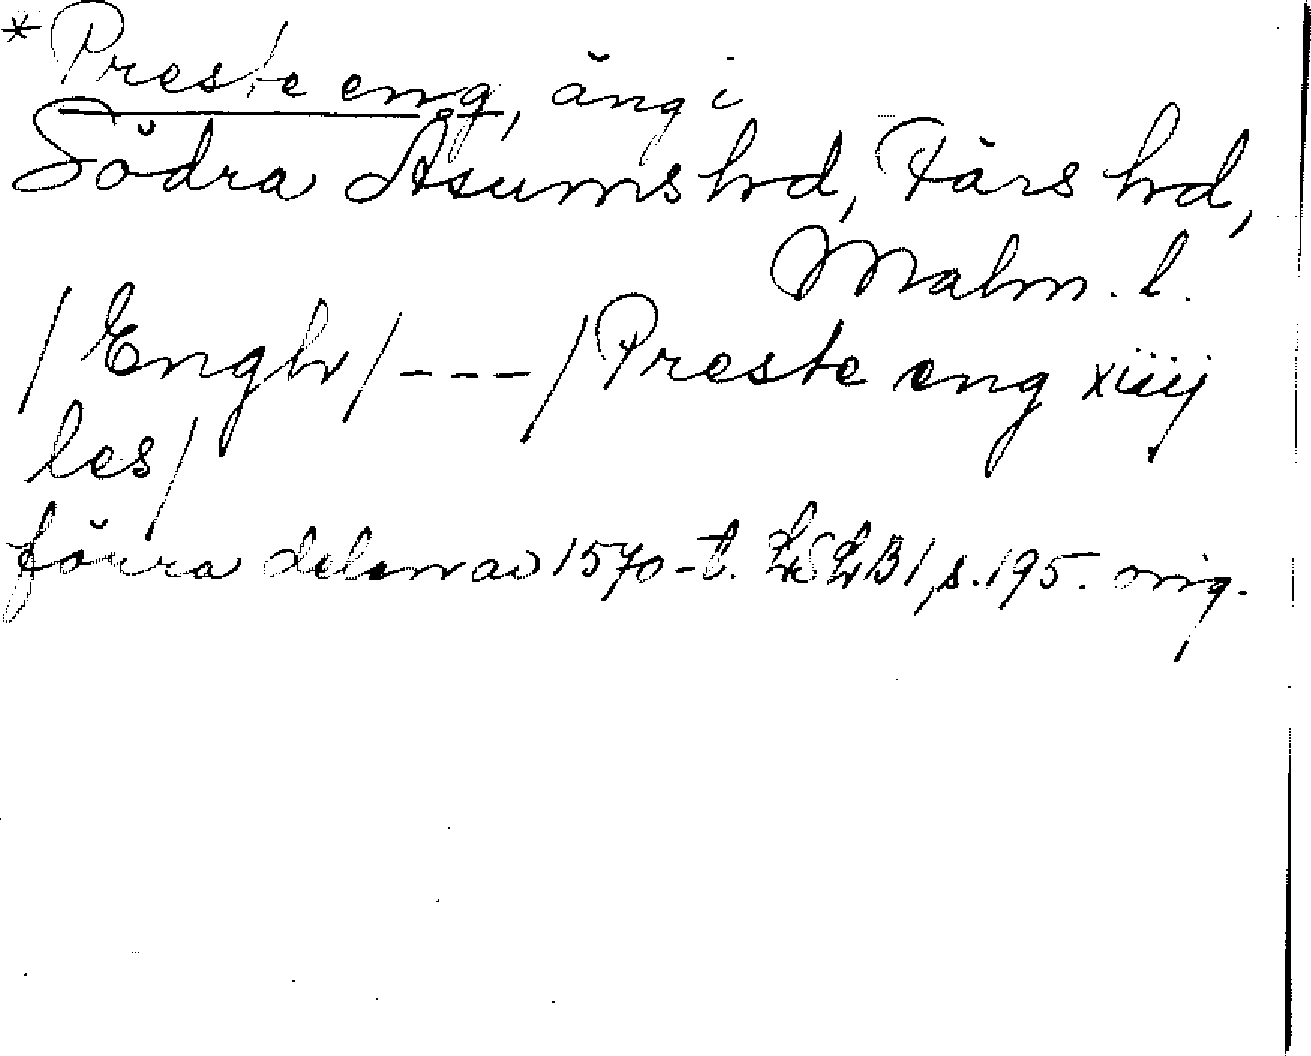 *Preste eng, äng i
Södra Åsums hd, Färs hd,
Malm. l.
/Engh/---/Preste eng xiiij
les/
förra delen av 1570-t. LSLB1, s.195. orig.